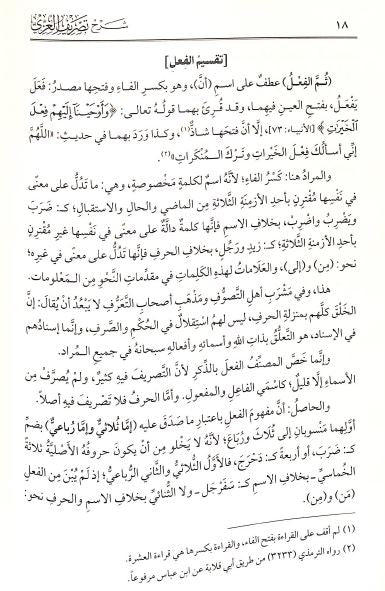 ١٨
شرح تصريف العزي
[تقسيم الفعل]
(ثُمَّ الفِعْلُ) عطفٌ على اسمِ (أنَّ)، وهو بكسرِ الفاءِ وفتحِها مصدرُ: فَعَلَ
يَفْعَلُ، بفتحِ العينِ فيهِما، وقد قُرِئَ بهما قولُهُ تعالى: ﴿وَأَوْحَيْنَا إِلَيْهِمْ فِعْلَ
الْخَيْرَاتِ﴾ [الأنبياء: ٧٣]، إلَّا أنَّ فتحَها شاذٌّ(١)، وكذا وَرَدَ بهما في حديثِ: «اللَّهُمَّ
إنِّي أسألُكَ فِعْلَ الخَيراتِ وتَرْكَ المُنكَراتِ»(٢).
والمرادُ هنا: كَسْرُ الفاءِ؛ لأنَّهُ اسمٌ لكلمةٍ مَخصُوصةٍ، وهي: ما تَدُلُّ على معنًى
في نَفْسِها مُقْتَرِنٍ بأحدِ الأزمِنَةِ الثَّلاثةِ مِن الماضي والحالِ والاستقبالِ؛ كـ: ضَرَبَ
ويَضْرِبُ واضْرِبْ، بخلافِ الاسمِ فإنَّها كلمةٌ دالَّةٌ على معنًى في نَفْسِها غيرِ مُقتَرِنٍ
بأحدِ الأزمنةِ الثَّلاثةِ؛ كـ: زيدٍ ورَجُلٍ، بخلافِ الحرفِ فإنَّها تَدُلُّ على معنًى في غيرِه؛
نحو: (مِن) و(إلى)، والعَلاماتُ لهذِهِ الكَلِماتِ في مقدِّماتِ النَّحوِ مِن المَعلوماتِ.
هذا، وفي مَشْرَبِ أهلِ التَّصوُّفِ ومَذْهَبِ أصحابِ التَّعرُّفِ لا يَبْعُدُ أنْ يُقالَ: إنَّ
الخَلْقَ كلَّهم بمنزلةِ الحرفِ، ليس لهم استِقْلالٌ في الحُكْمِ والصَّرفِ، وإنَّما إسنادُهم
في الإسنادِ، هو التَّعلُّقُ بذاتِ اللهِ وأسمائِهِ وأفعالِهِ سبحانَهُ في جميعِ المُرادِ.
وإنَّما خَصَّ المصنِّفُ الفعلَ بالذِّكرِ لأنَّ التَّصريفَ فيهِ كثيرٌ، ولم يُصرَّفْ مِن
الأسماءِ إلَّا قليلٌ؛ كاسْمَيِ الفاعِلِ والمفعولِ. وأمَّا الحرفُ فلا تَصْريفَ فيهِ أصلًا.
والحاصلُ: أنَّ مفهومَ الفعلِ باعتبارِ ما صَدَقَ عليهِ (إمَّا ثُلاثيٌّ وإمَّا رُباعيٌّ) بضمِّ
أوَّلِهما مَنْسوبانِ إلى ثُلاثَ ورُبَاعَ؛ لأنَّهُ لا يَخْلو مِن أنْ يكونَ حروفُهُ الأصْلِيَّةُ ثلاثةً
كـ: ضَرَبَ، أو أربعةً كـ: دَحْرَجَ، فالأوَّلُ الثُّلاثيُّ والثَّاني الرُّباعيُّ؛ إذ لم يُبْنَ مِن الفعلِ
الخُماسيُّ ـ بخلافِ الاسمِ كـ: سَفَرْجَل ـ ولا الثُّنائيُّ بخلافِ الاسمِ والحرفِ نحو:
(مَن) و(مِن).
(١) لم أقف على القراءة بفتح الفاء، والقراءة بكسرها هي قراءة العشرة.
(٢) رواه الترمذي (٣٢٣٣) من طريق أبي قلابة عن ابن عباس مرفوعاً.